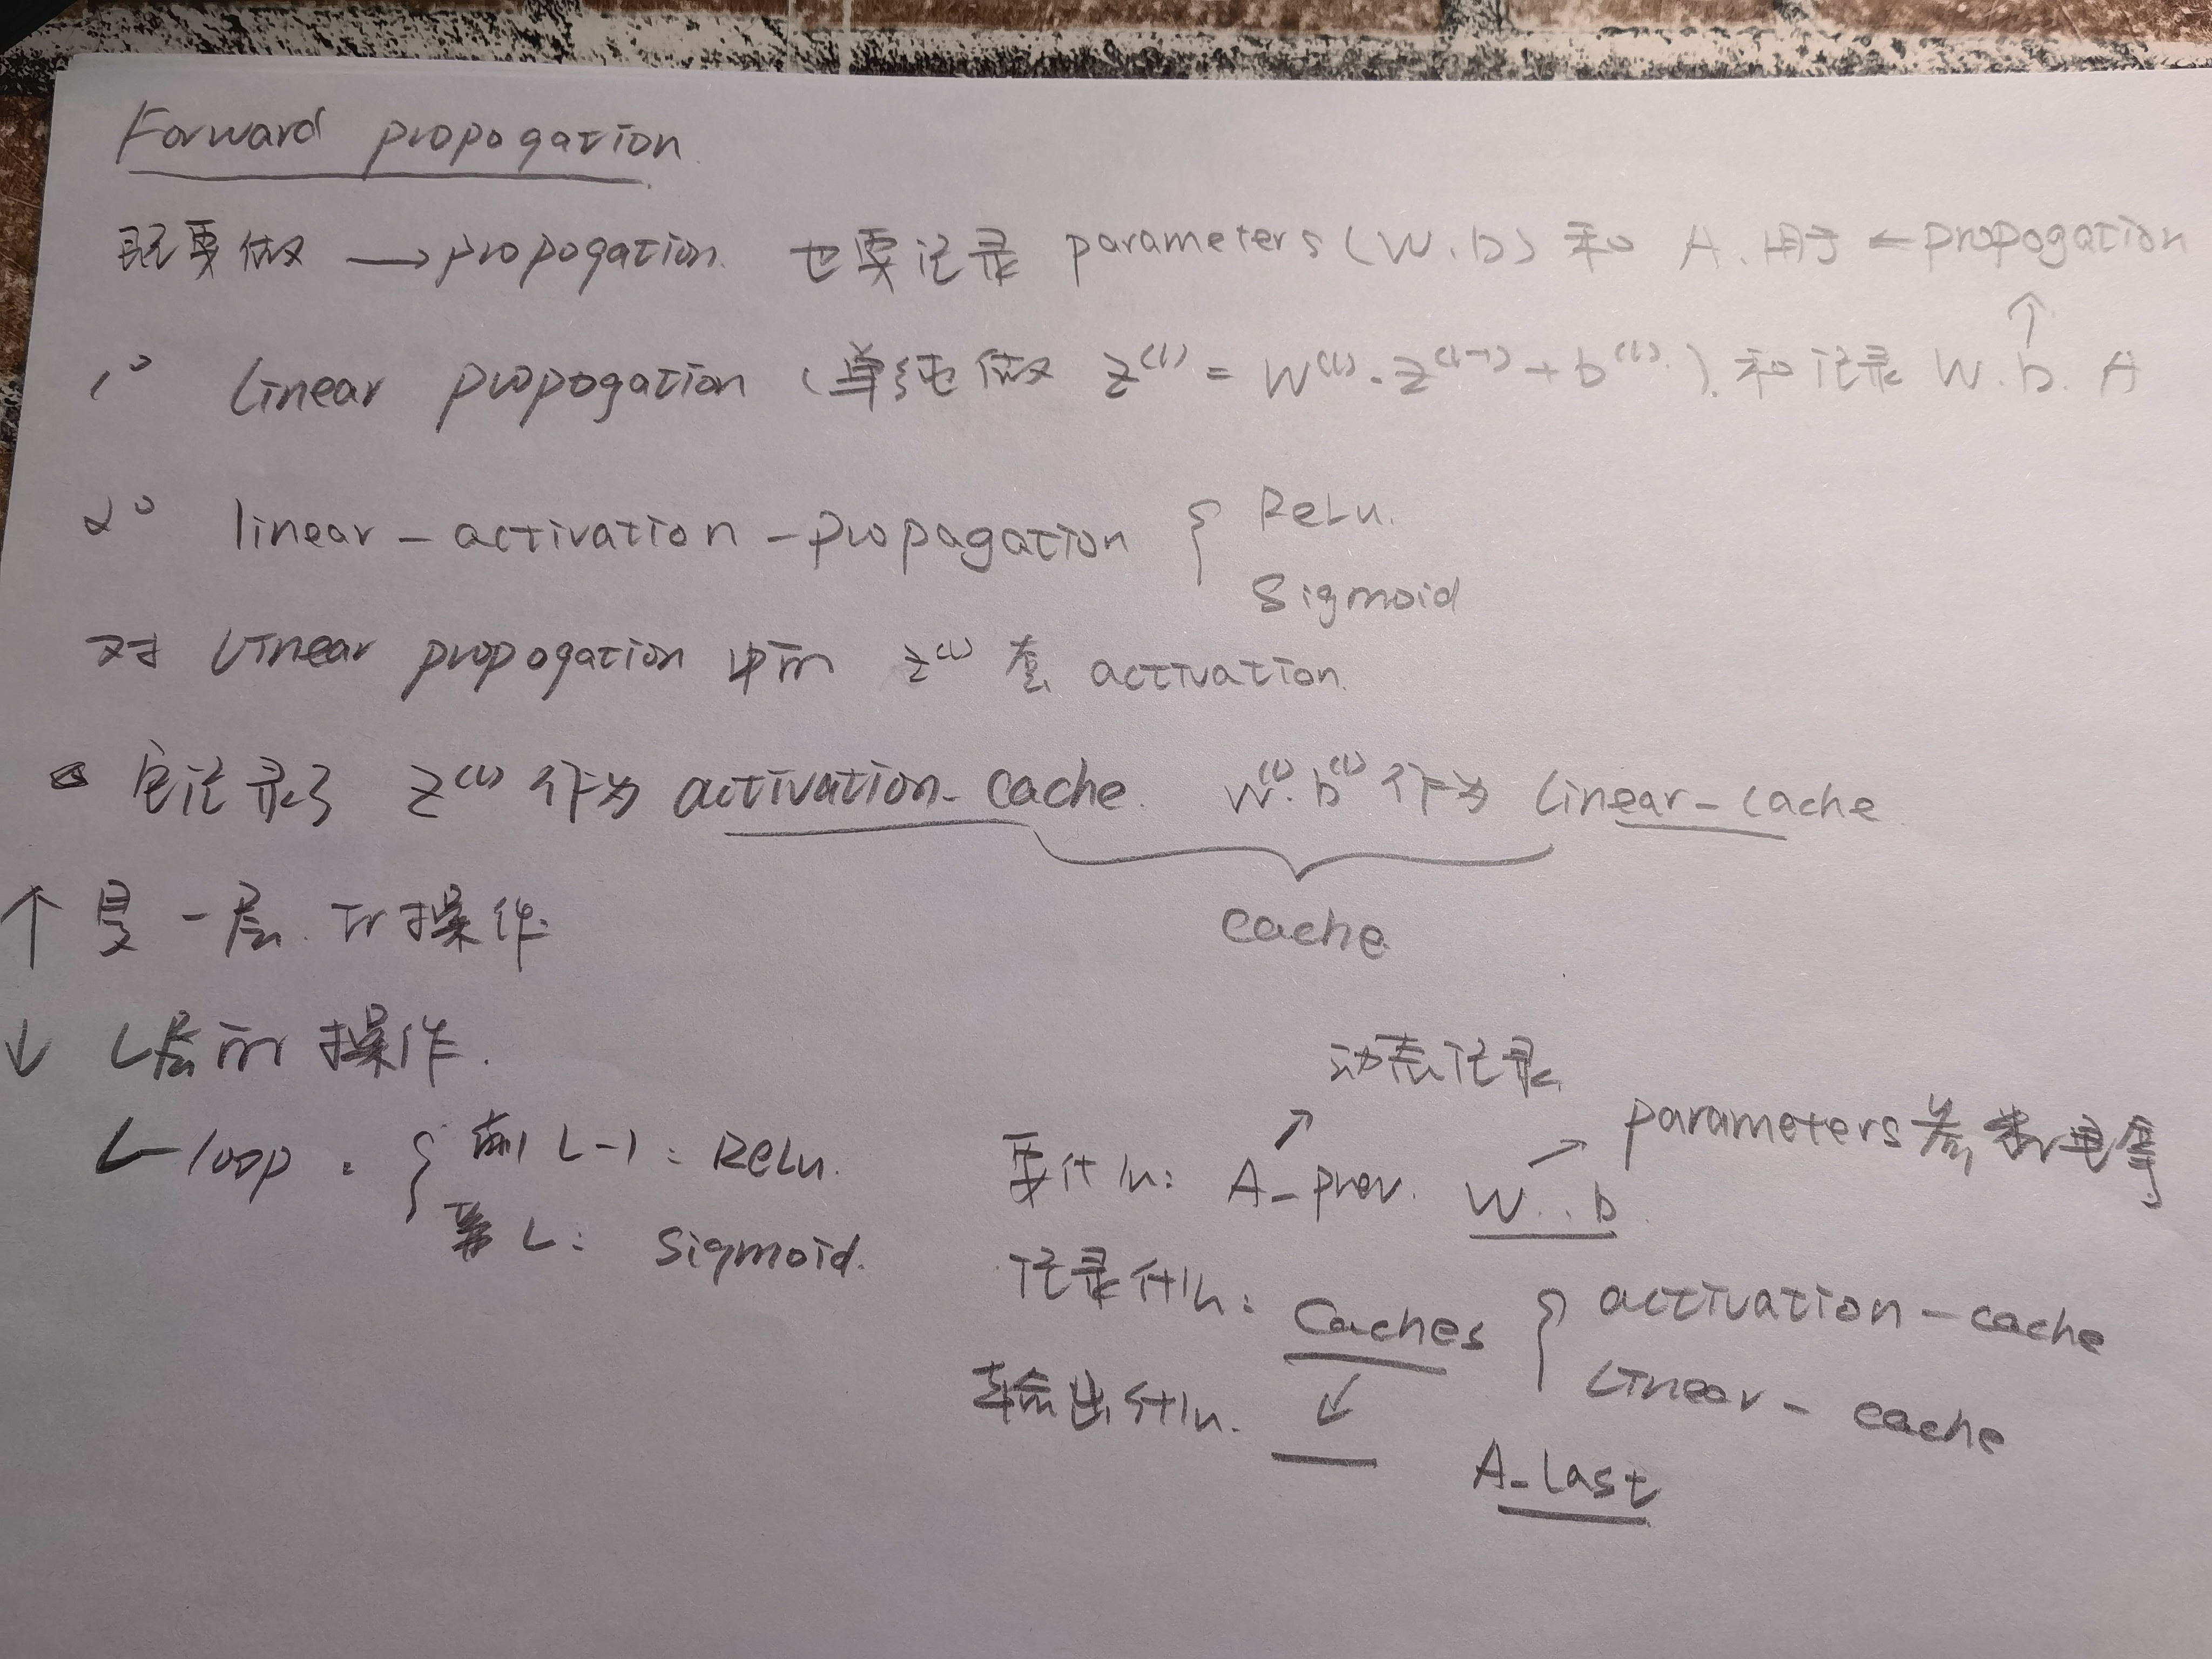 Forward propogation
既要做 → propogation. 也要记录 parameters (W.b) 和 A. 用于 ← propogation
↑
1° Linear propogation (单纯做 z^(l) = W^(l) · z^(l-1) + b^(l).) 和记录 W.b. A
2° linear-activation-propagation { ReLu.
Sigmoid
对 Linear propogation 中的 z^(l) 套 activation.
它记录了 z^(l) 作为 activation-cache. W^(l).b^(l) 作为 Linear-cache
cache
↑ 是一层的操作.
↓ L层的操作.
L-loop: { 前 L-1: ReLu.
第 L: Sigmoid.
动态记录
要什么: A_prev. W..b → parameters
记录什么: Caches { activation-cache
Linear-cache
输出什么. ↙
A_last